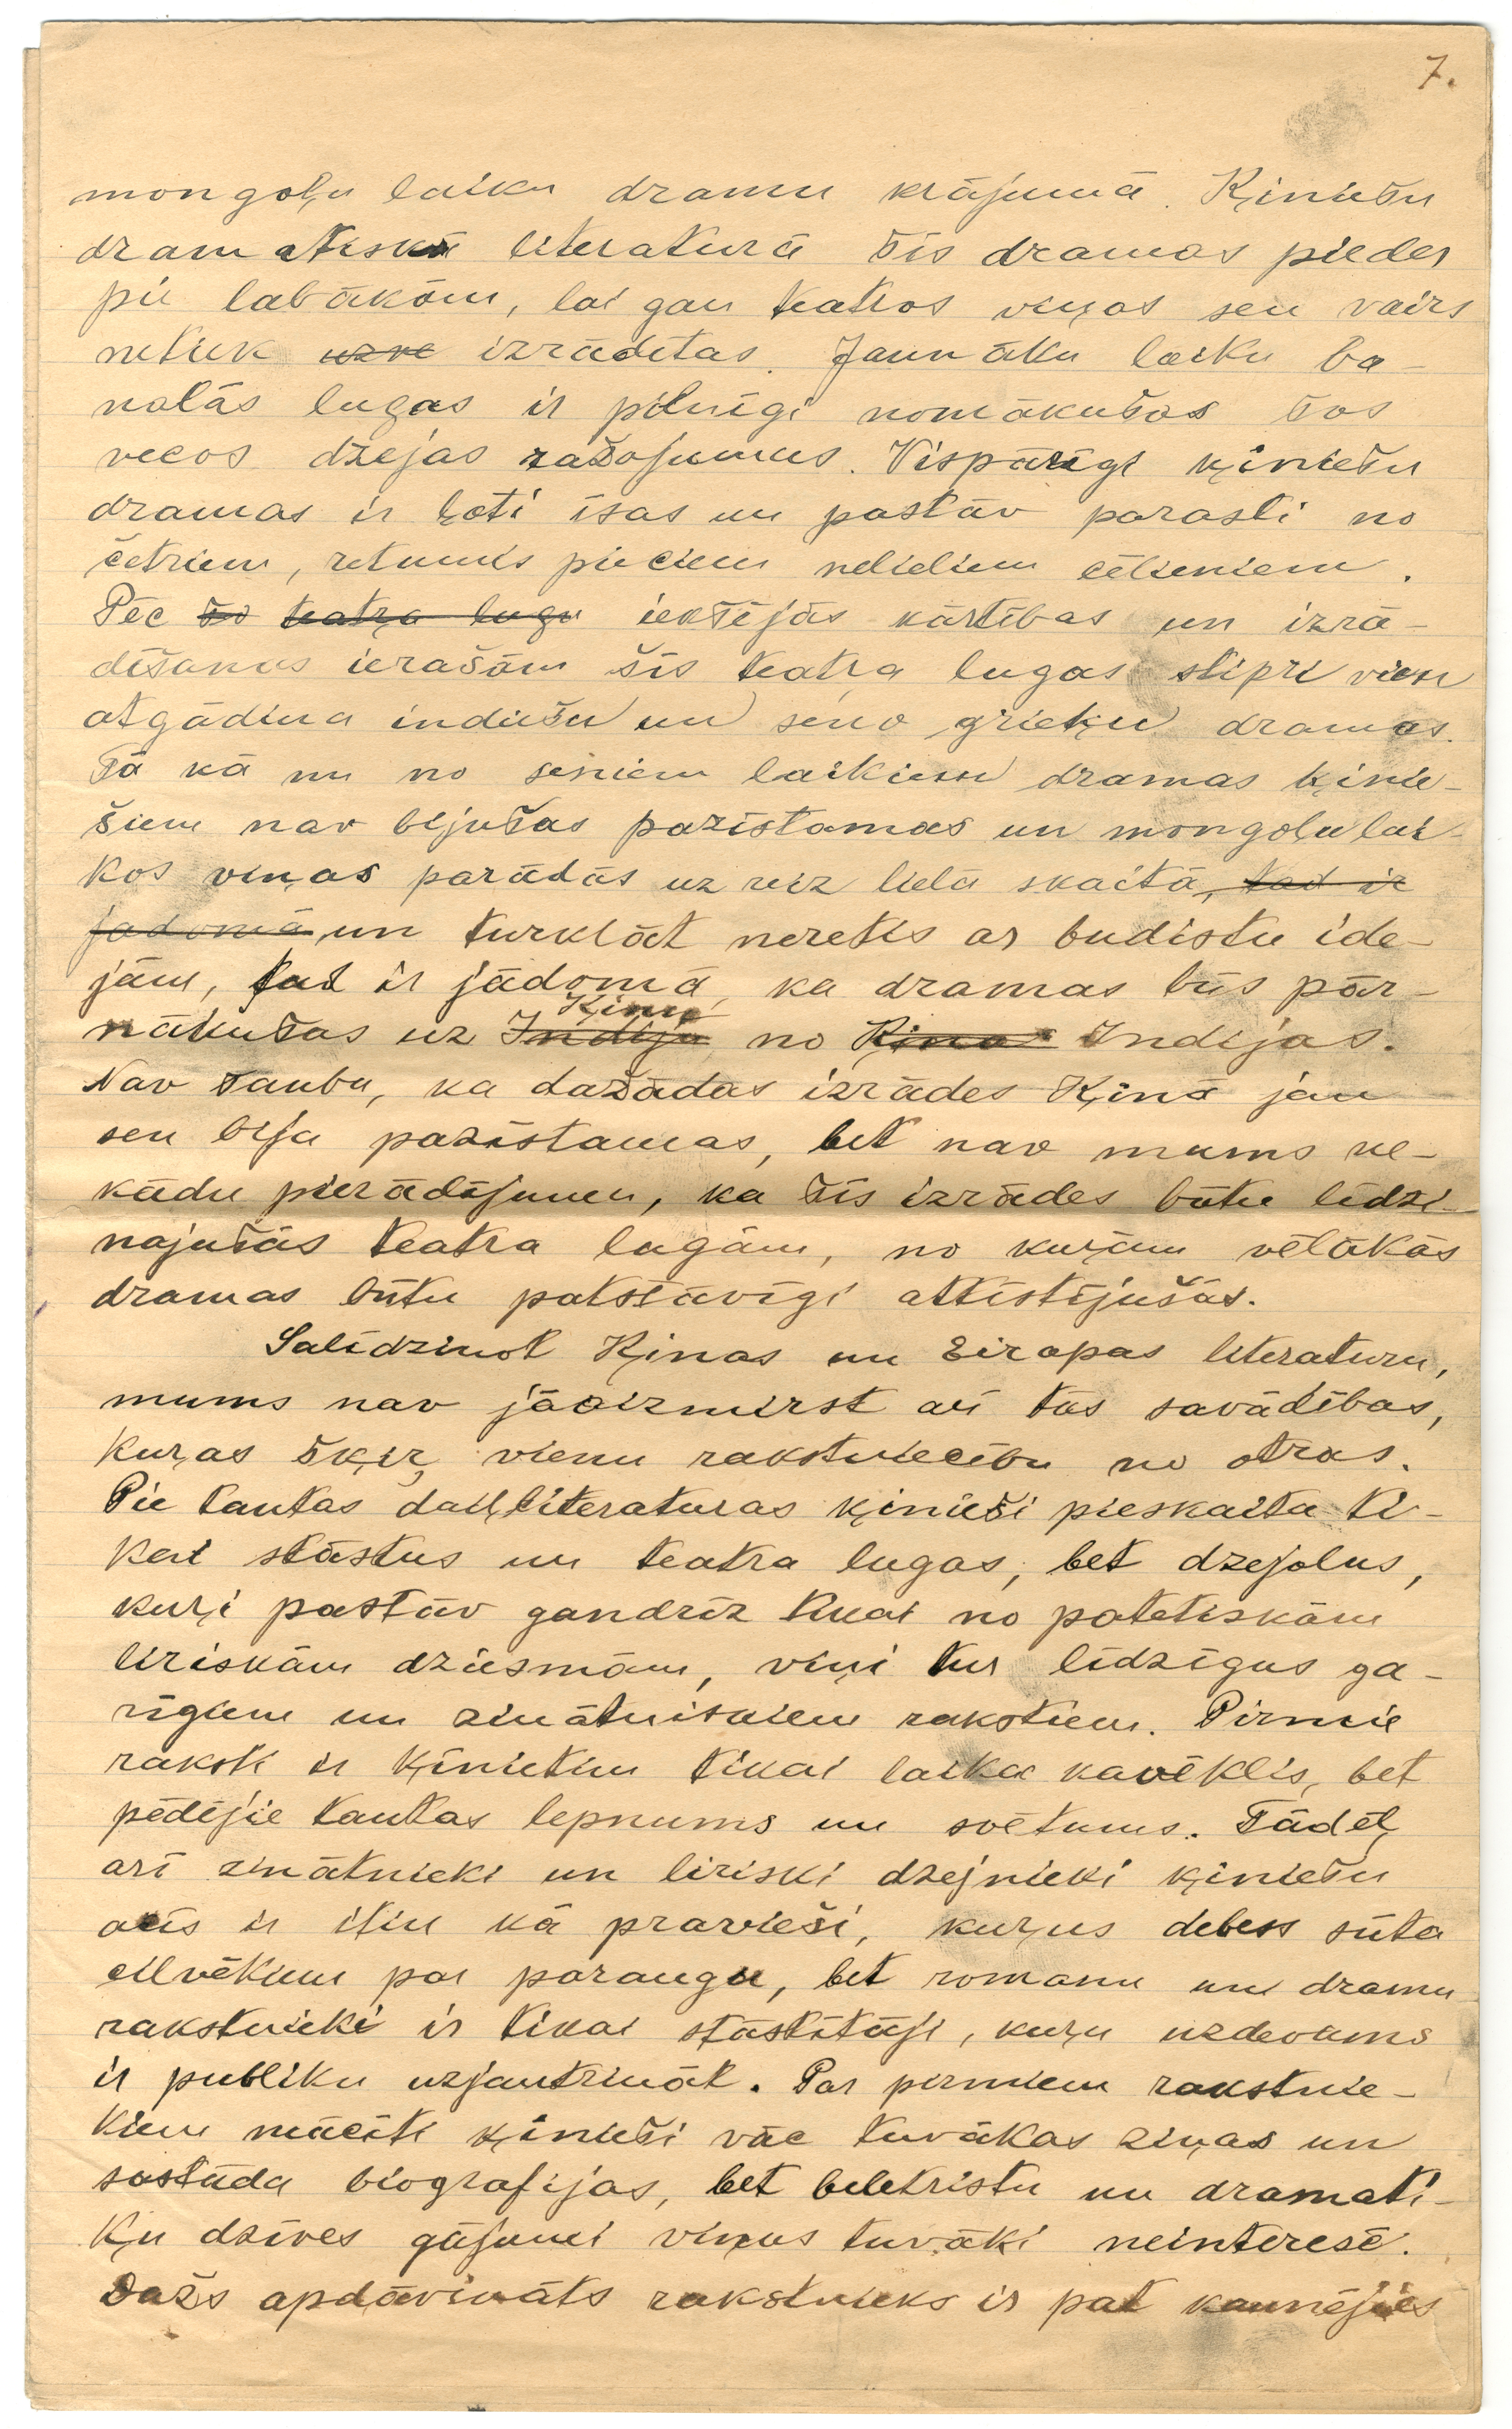 7.
mongoļu laiku dramu krājumā. Ķiniešu
dramatiskā literaturā šīs dramas pieder
pie labākām, lai gan teatros viņas sen vairs
netiek uzve izrādītas. Jaunāku laiku ba-
nalās lugas ir pilnīgi nomākušas šos
vecos dzejas ražojumus. Vispārīgi ķiniešu
dramas ir ļoti īsas un pastāv parasti no
četriem, retumis pieciem nelieliem cēlieniem.
Pēc šo teatra lugu iekšējās kārtības un izrā-
dīšanas ierašām šīs teatŗa lugas stipri vien
atgādina indiešu un seno grieķu dramas.
Tā kā nu no seniem laikiem dramas ķinie-
šiem nav bijušas pazīstamas un mongoļu lai-
kos viņas parādās uz reiz lielā skaitā, tad ir
jadomā, un turklāt neretis ar budistu ide-
jām, tad ir jādomā, ka dramas būs pār-
Ķinu
nākušas uz Indiju no Ķinas Indijas.
Nav šaubu, ka dažādas izrādes Ķinā jau
sen bija pazīstamas, bet nav mums ne-
kādu pierādījumu, ka šīs izrādes būtu līdzi-
najušās teatra lugām, no kuŗām vēlākās
dramas būtu patstāvīgi attīstījušās.
Salīdzinot Ķinas un Eiropas literaturu,
mums nav jāaizmirst arī tās savādības,
kuŗas šķiŗ vienu rakstniecību no otras.
Pie tautas daiļliteraturas ķinieši pieskaita ti-
kai stāstus un teatra lugas, bet dzejolus,
kuŗi pastāv gandrīz tikai no patetiskām
liriskām dziesmām, viņi tur līdzīgus ga-
rīgiem un zinātniskiem rakstiem. Pirmie
raksti ir ķinietim tikai laika kavēklis, bet
pēdējie tautas lepnums un svētums. Tādēļ
arī zinātnieki un liriski dzejnieki ķiniešu
acīs ir itin kā pravieši, kuŗus debess sūta
cilvēkiem par paraugu, bet romanu un dramu
rakstnieki ir tikai stāstītāji, kuŗu uzdevums
ir publiku uzjautrināt. Par pirmiem rakstnie-
kiem mācīti ķinieši vāc tuvākas ziņas un
sastāda biografijas, bet beletristu un dramati-
ķu dzīves gājumi viņus tuvāki neinteresē.
Dažs apdāvināts rakstnieks ir pat kaunējies